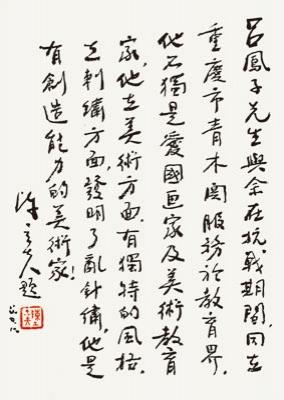 吕鳳子先生與余在抗戰期間,同在
重慶市青木関服務於教育界.
他不獨是愛國画家及美術教育
家,他在美術方面.有獨特的風格.
在刺繡方面,發明了亂針繡,他是
有創造能力的美術家!
陳立夫題